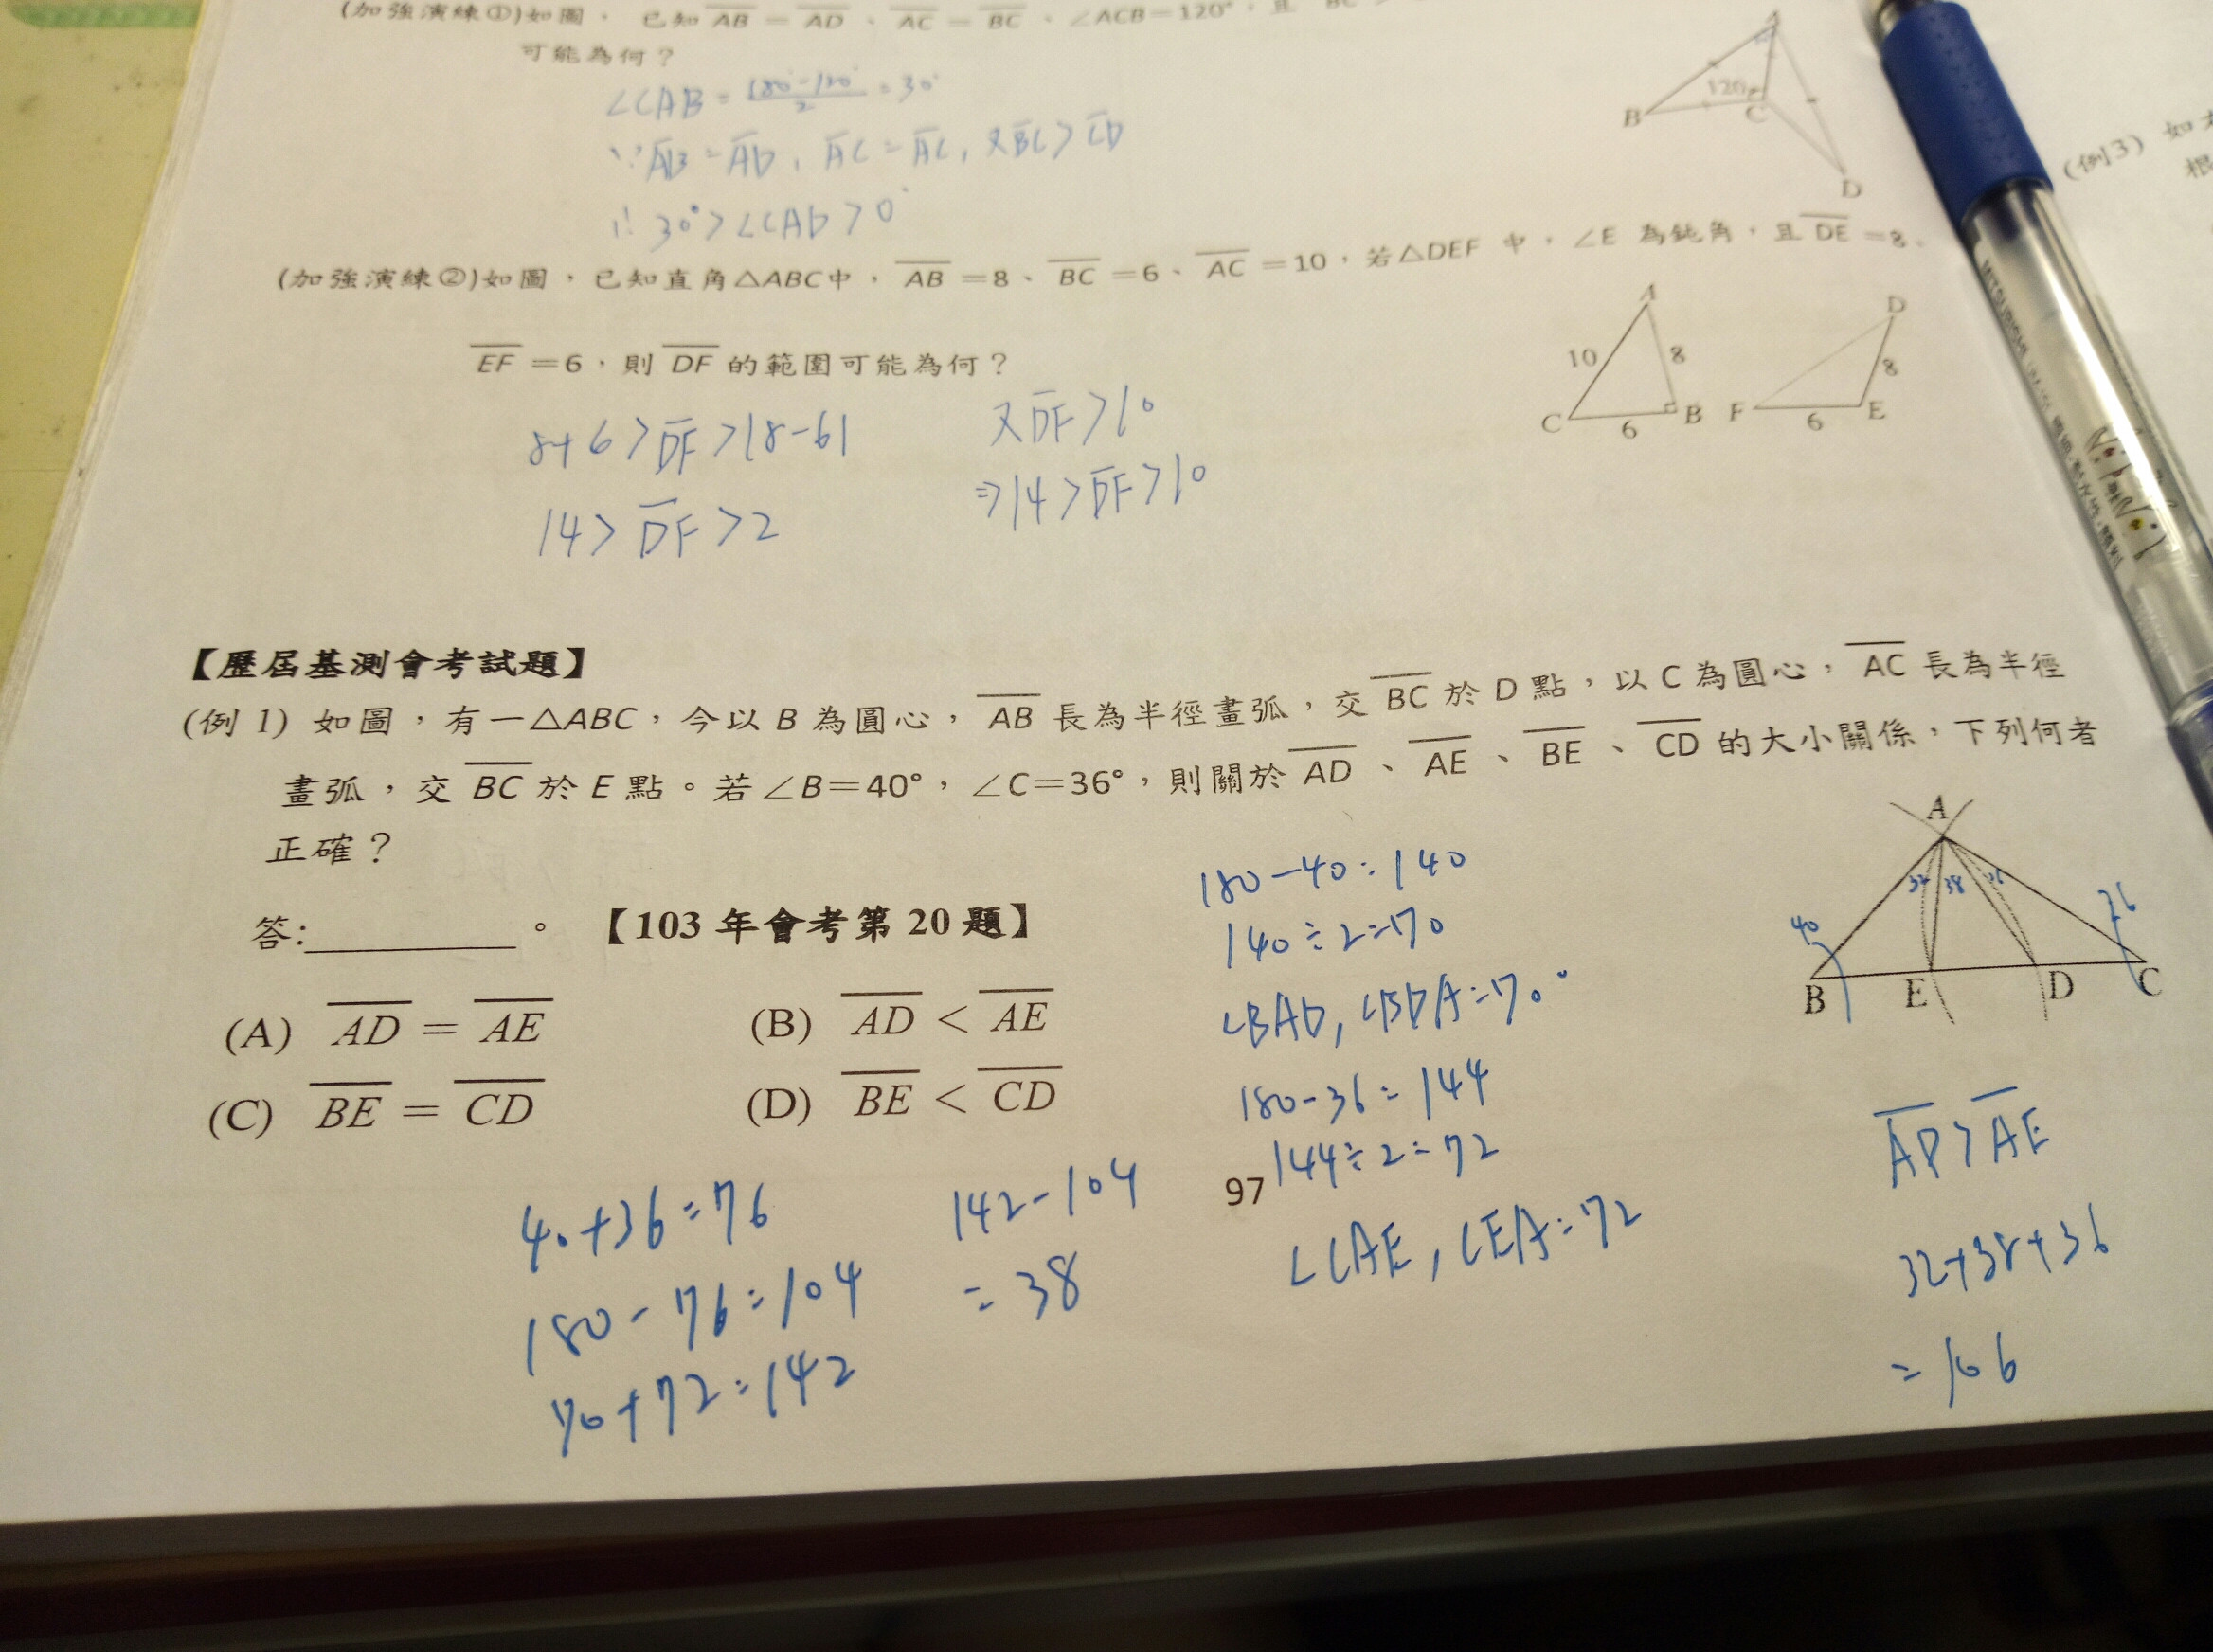 (加強演練①)如圖，已知 AB = AD、AC = BC、∠ACB=120°，且 BC
可能為何？
∠CAB = (180°-120°)/2 = 30°
∵ AB = AD, AC = AC, 又BC > CD
∴ 30° > ∠CAD > 0°
A
120
B
C
D
(例3) 如
根
(加強演練②)如圖，已知直角△ABC中，AB =8、BC =6、AC =10，若△DEF 中，∠E 為鈍角，且DE =8、
EF =6，則 DF 的範圍可能為何？
8+6 > DF > |8-6|
14 > DF > 2
又DF > 10
⇒ 14 > DF > 10
A
10
8
C
6
B
D
8
F
6
E
【歷屆基測會考試題】
(例 1) 如圖，有一△ABC，今以 B 為圓心，AB 長為半徑畫弧，交 BC 於 D 點，以 C 為圓心，AC 長為半徑
畫弧，交 BC 於 E 點。若∠B=40°，∠C=36°，則關於 AD、AE、BE、CD 的大小關係，下列何者
正確？
答:__________。【103 年會考第 20 題】
(A) AD = AE
(B) AD < AE
(C) BE = CD
(D) BE < CD
180-40=140
140÷2=70
∠BAD, ∠BDA=70°
180-36=144
144÷2=72
∠CAE, ∠EA=72
A
32
38
40
B
E
D
C
AD > AE
32+38+36
=106
40+36=76
180-76=104
70+72=142
142-104
=38
97